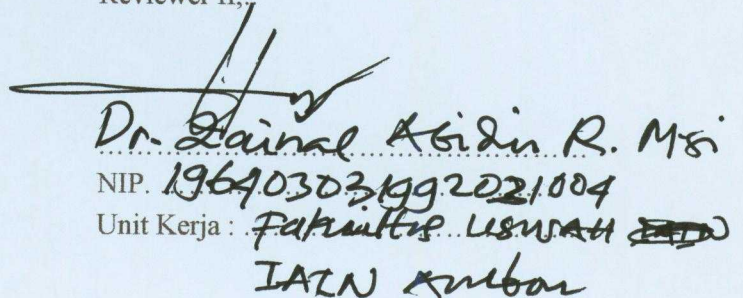 Reviewer II,
Dr. Zainal Abidin R. Msi
NIP. 196403031992021004
Unit Kerja : Fakultas USWAH
IAIN Ambon